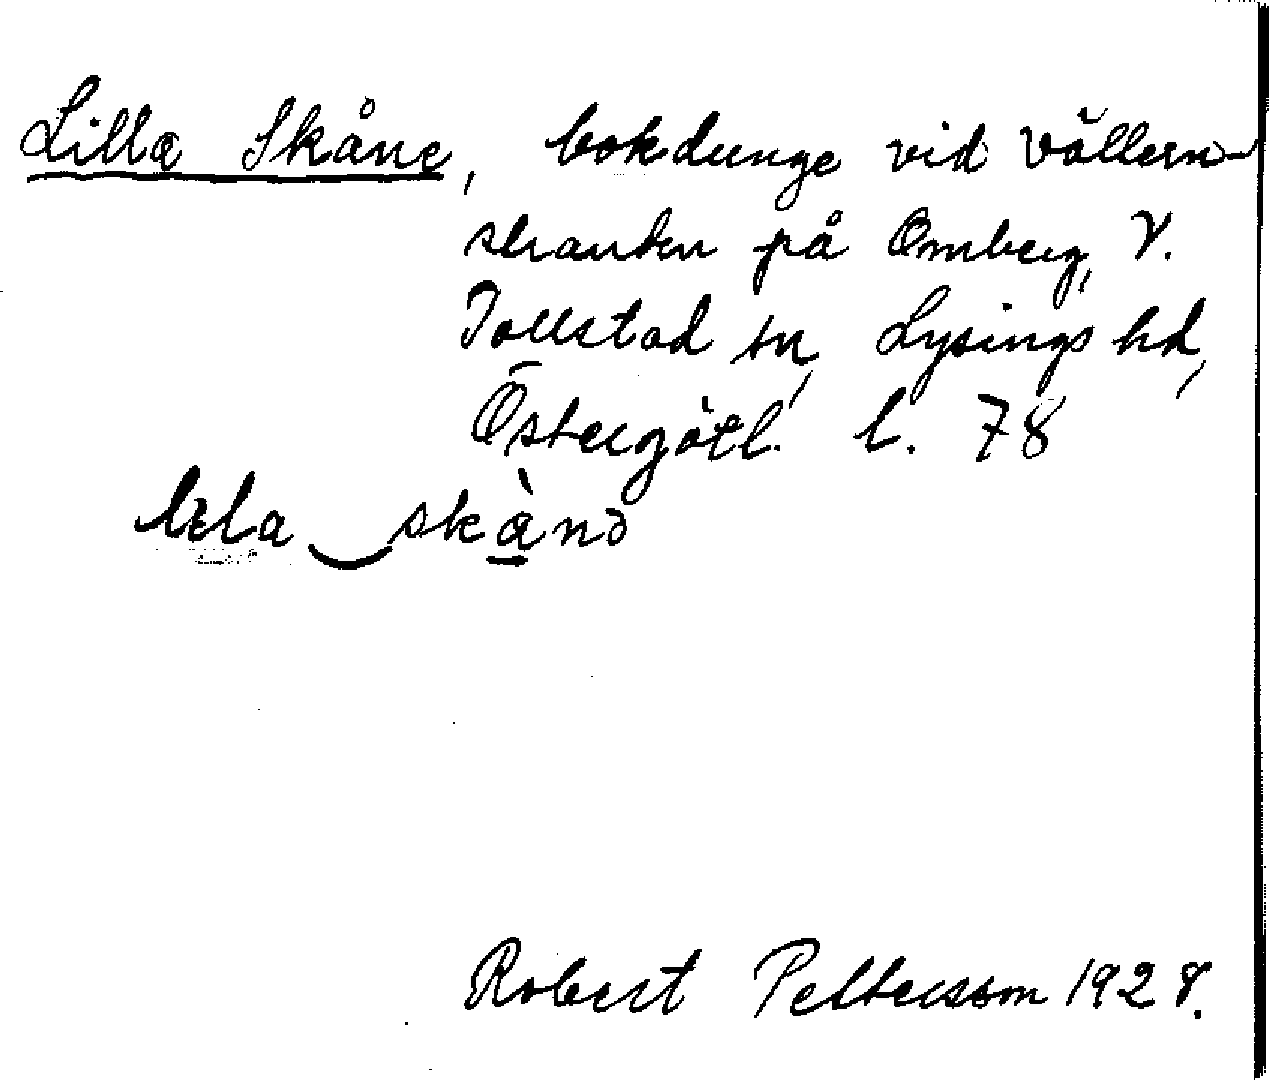 Lilla Skåne, bokdunge vid Vättern-
stranden på Omberg, V.
Tollstad sn, Lysings hd,
Östergötl. l. 78
skànə
Robert Pettersson 1928.